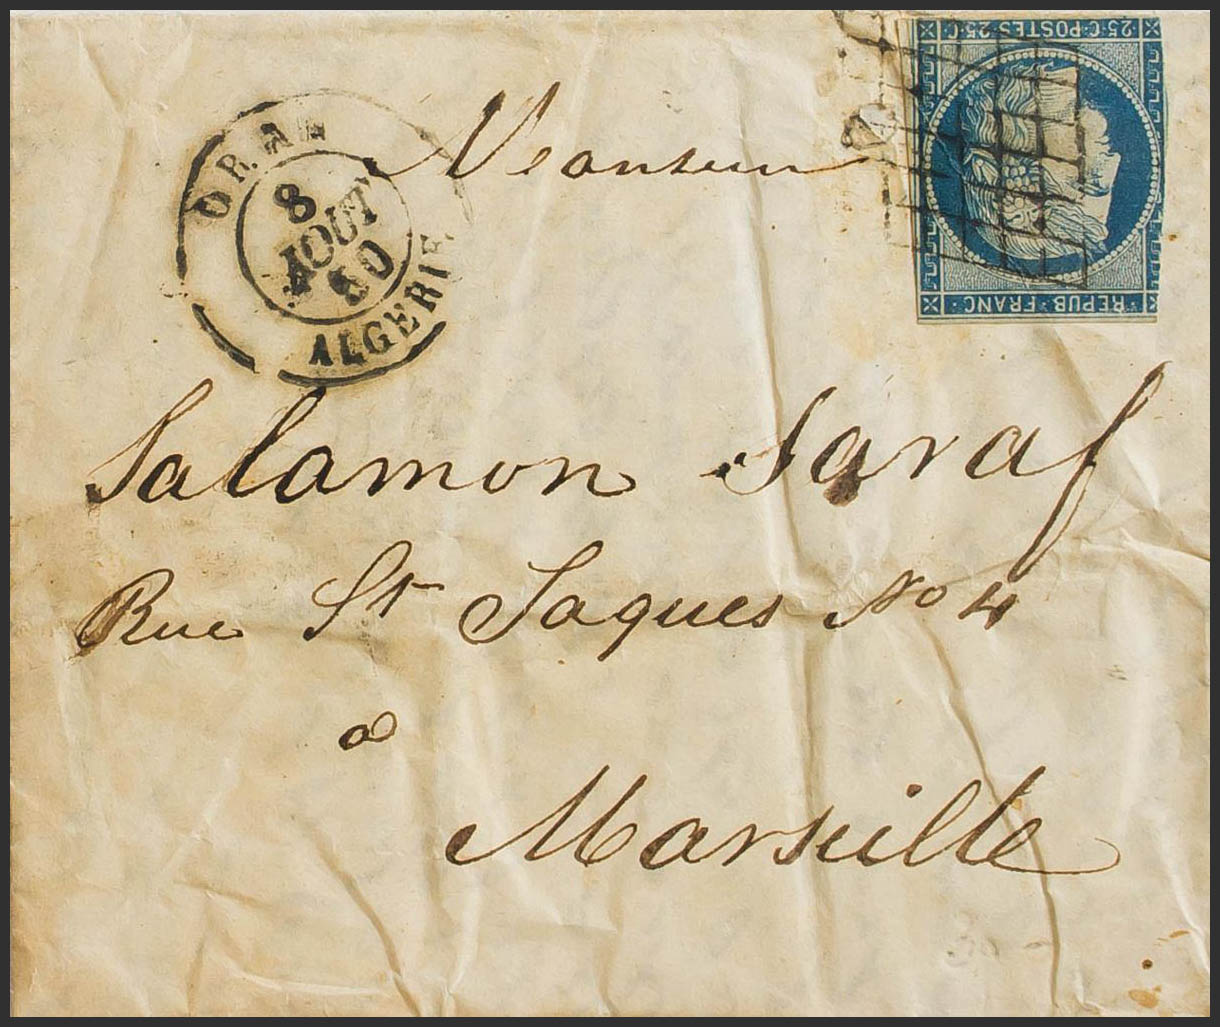 25·C·POSTES·25·C·
REPUB·FRANC·
ORAN
8
AOUT
50
ALGERIE
Monsieur
Salamon Saraf
Rue St Jaques No 4
a
Marseille